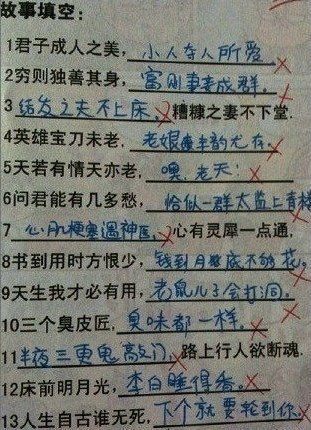 故事填空:
1君子成人之美,小人夺人所爱
2穷则独善其身,富则妻妾成群.
3 结发之夫不上床,糟糠之妻不下堂.
4英雄宝刀未老.老娘风韵尤存.
5天若有情天亦老,噢.老天!
6问君能有几多愁,恰似一群太监上青楼
7 心肌梗塞遇神医,心有灵犀一点通.
8书到用时方恨少,钱到月底不够花.
9天生我才必有用,老鼠儿子会打洞.
10三个臭皮匠,臭味都一样.
11半夜三更鬼敲门,路上行人欲断魂.
12床前明月光,李白睡得香.
13人生自古谁无死,下个就要轮到你.